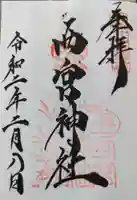 奉拝
西宮神社
令和二年二月八日